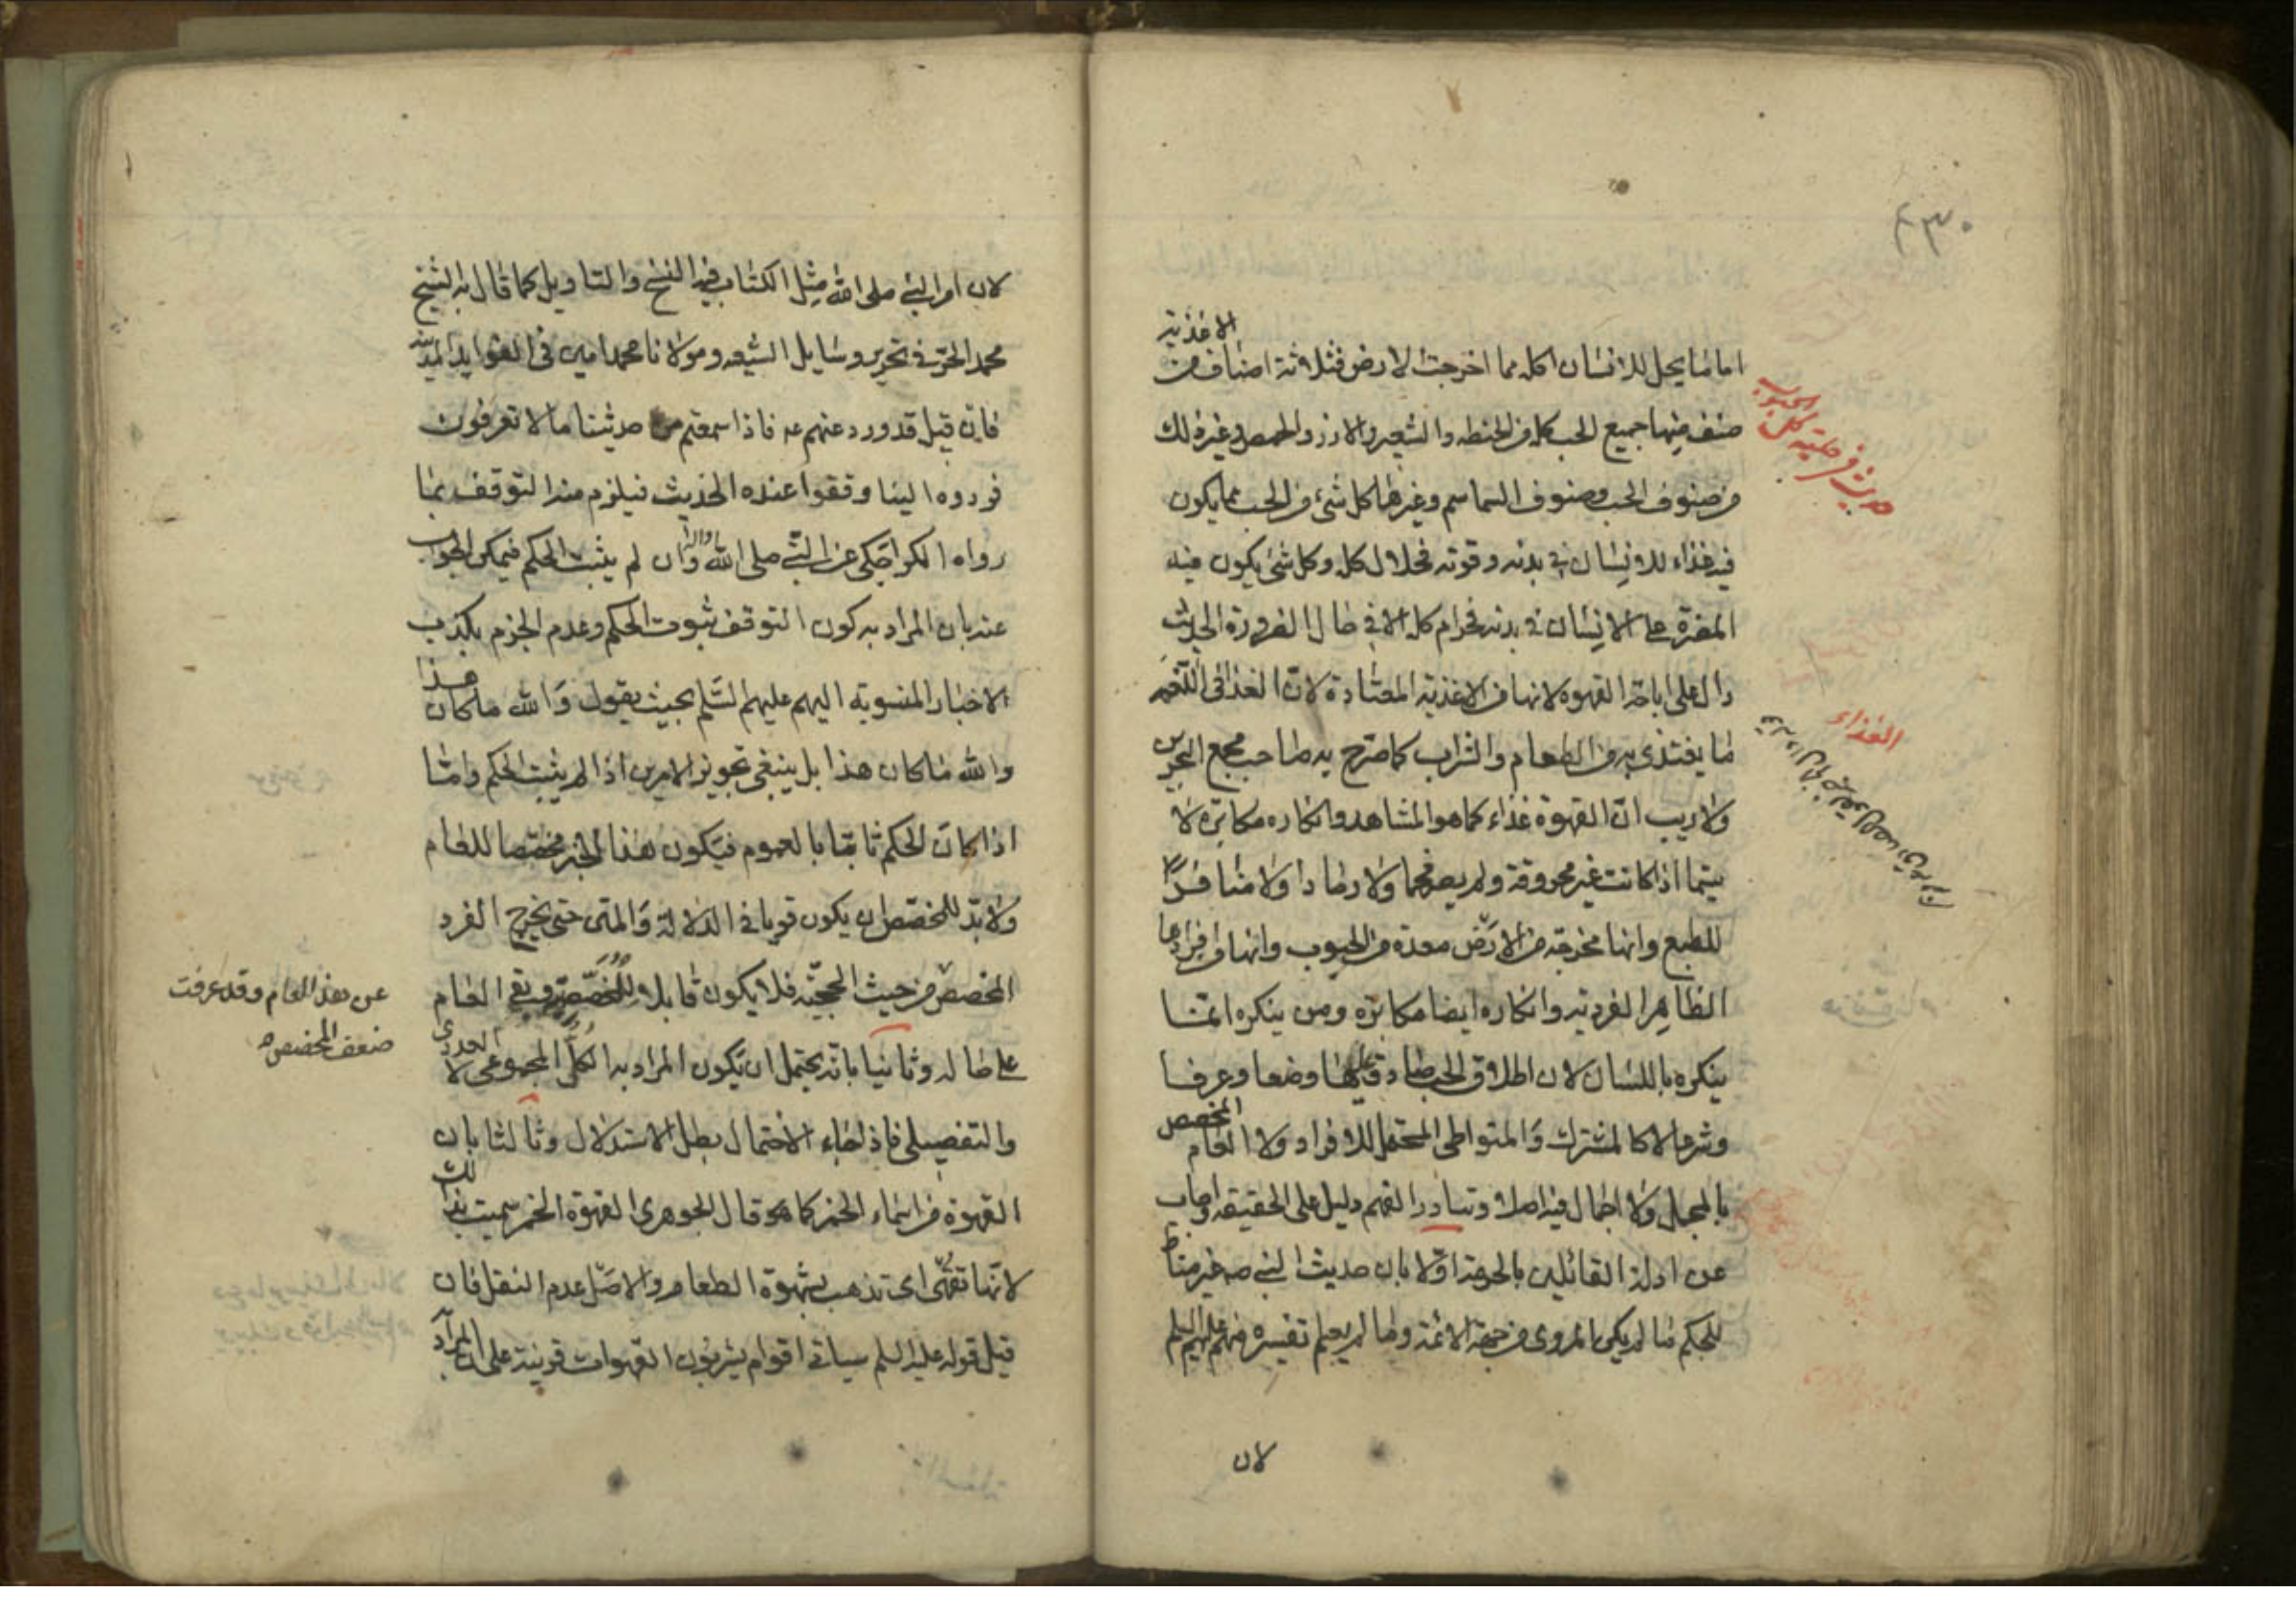 ٤٣٠
الاغذية
اما ما يحل للانسان اكله مما اخرجت الارض فثلاثة اصناف من
صنف منها جميع الحب كله من الحنطه والشعير والارز والحمص وغير ذلك
من صنوف الحب وصنوف السماسم وغيرها كل شئ من الحب مما يكون
فيه غذاء للانسان في بدنه وقوته فحلال اكله وكل شئ يكون فيه
المضرة على الانسان في بدنه فحرام اكله الا في حال الضرورة الحديث
دال على اباحة القهوه لانها من الاغذية المعتادة لان الغذا في اللغة
ما يغتذى به من الطعام والشراب كما صرح به صاحب مجمع البحرين
ولا ريب ان القهوة غذاء كما هو المشاهد وانكاره مكابرة لا
سيما اذا كانت غير محروقة ولم يصر فحما ولا رمادا ولا منافرا
للطبع وانها مخرجة من الارض معدة من الحبوب وانها من افرادها
الظاهر الفردية وانكاره ايضا مكابرة ومن ينكره انما
ينكره باللسان لان اطلاق الحب صادق عليها وضعا وعرفا
وشرعا لا كالمشترك والمتواطى المحتمل للافراد ولا العام المخصص
بالمجمل ولا اجمال فيه اصلا وتبادر الفهم دليل على الحقيقة واجاب
عن ادلة القائلين بالحرمة اولا بان حديث النبي ص غير مناط
للحكم ما لم يكن بالمروى من جهة الائمة وما لم يعلم تفسيره منهم عليهم السلم
لان
حديث في حلية كل الحبوب
الغذاء
لان امر النبي صلى الله مثل الكتاب فيه النسخ والتاويل كما قال به الشيخ
محمد الحر في تحرير وسايل الشيعه ومولانا محمد امين في الفوايد المدنية
فان قيل قد ورد عنهم عه فاذا سمعتم من حديثنا ما لا تعرفون
فردوه الينا وقفوا عنده الحديث فيلزم منه التوقف بما
رواه الكراجكى عن النبي صلى الله واله وان لم يثبت الحكم فيمكن الجواب
عنه بان المراد به كون التوقف ثبوت الحكم وعدم الجزم بكذب
الاخبار المنسوبة اليهم عليهم السلم بحيث يقول والله ما كان هذا
والله ما كان هذا بل ينبغي تجويز الامرين اذا لم يثبت الحكم وامثا
اذا كان الحكم ثابتا بالعموم فيكون هذا الخبر مخصصا للعام
ولا بد للمخصص ان يكون قويا في الدلالة والمتن حتى يخرج الفرد
المخصص من حيث الحجية فلا يكون قابلا للمخصص وبقى العام
على حاله وثانيا بانه يحتمل ان يكون المراد به الكل المجموعى لا العددى
والتفصيلى فاذا جاء الاحتمال بطل الاستدلال وثالثا بان
القهوة من اسماء الخمر كما هو قال الجوهرى القهوة الخمر سميت بذلك
لانها تقهى اى تذهب بشهوة الطعام والاصل عدم النقل فان
قيل قوله عليه السلم سياتى اقوام يشربون القهوات قرينة على ان المراد
عن هذا العام وقد عرفت
ضعف المخصص